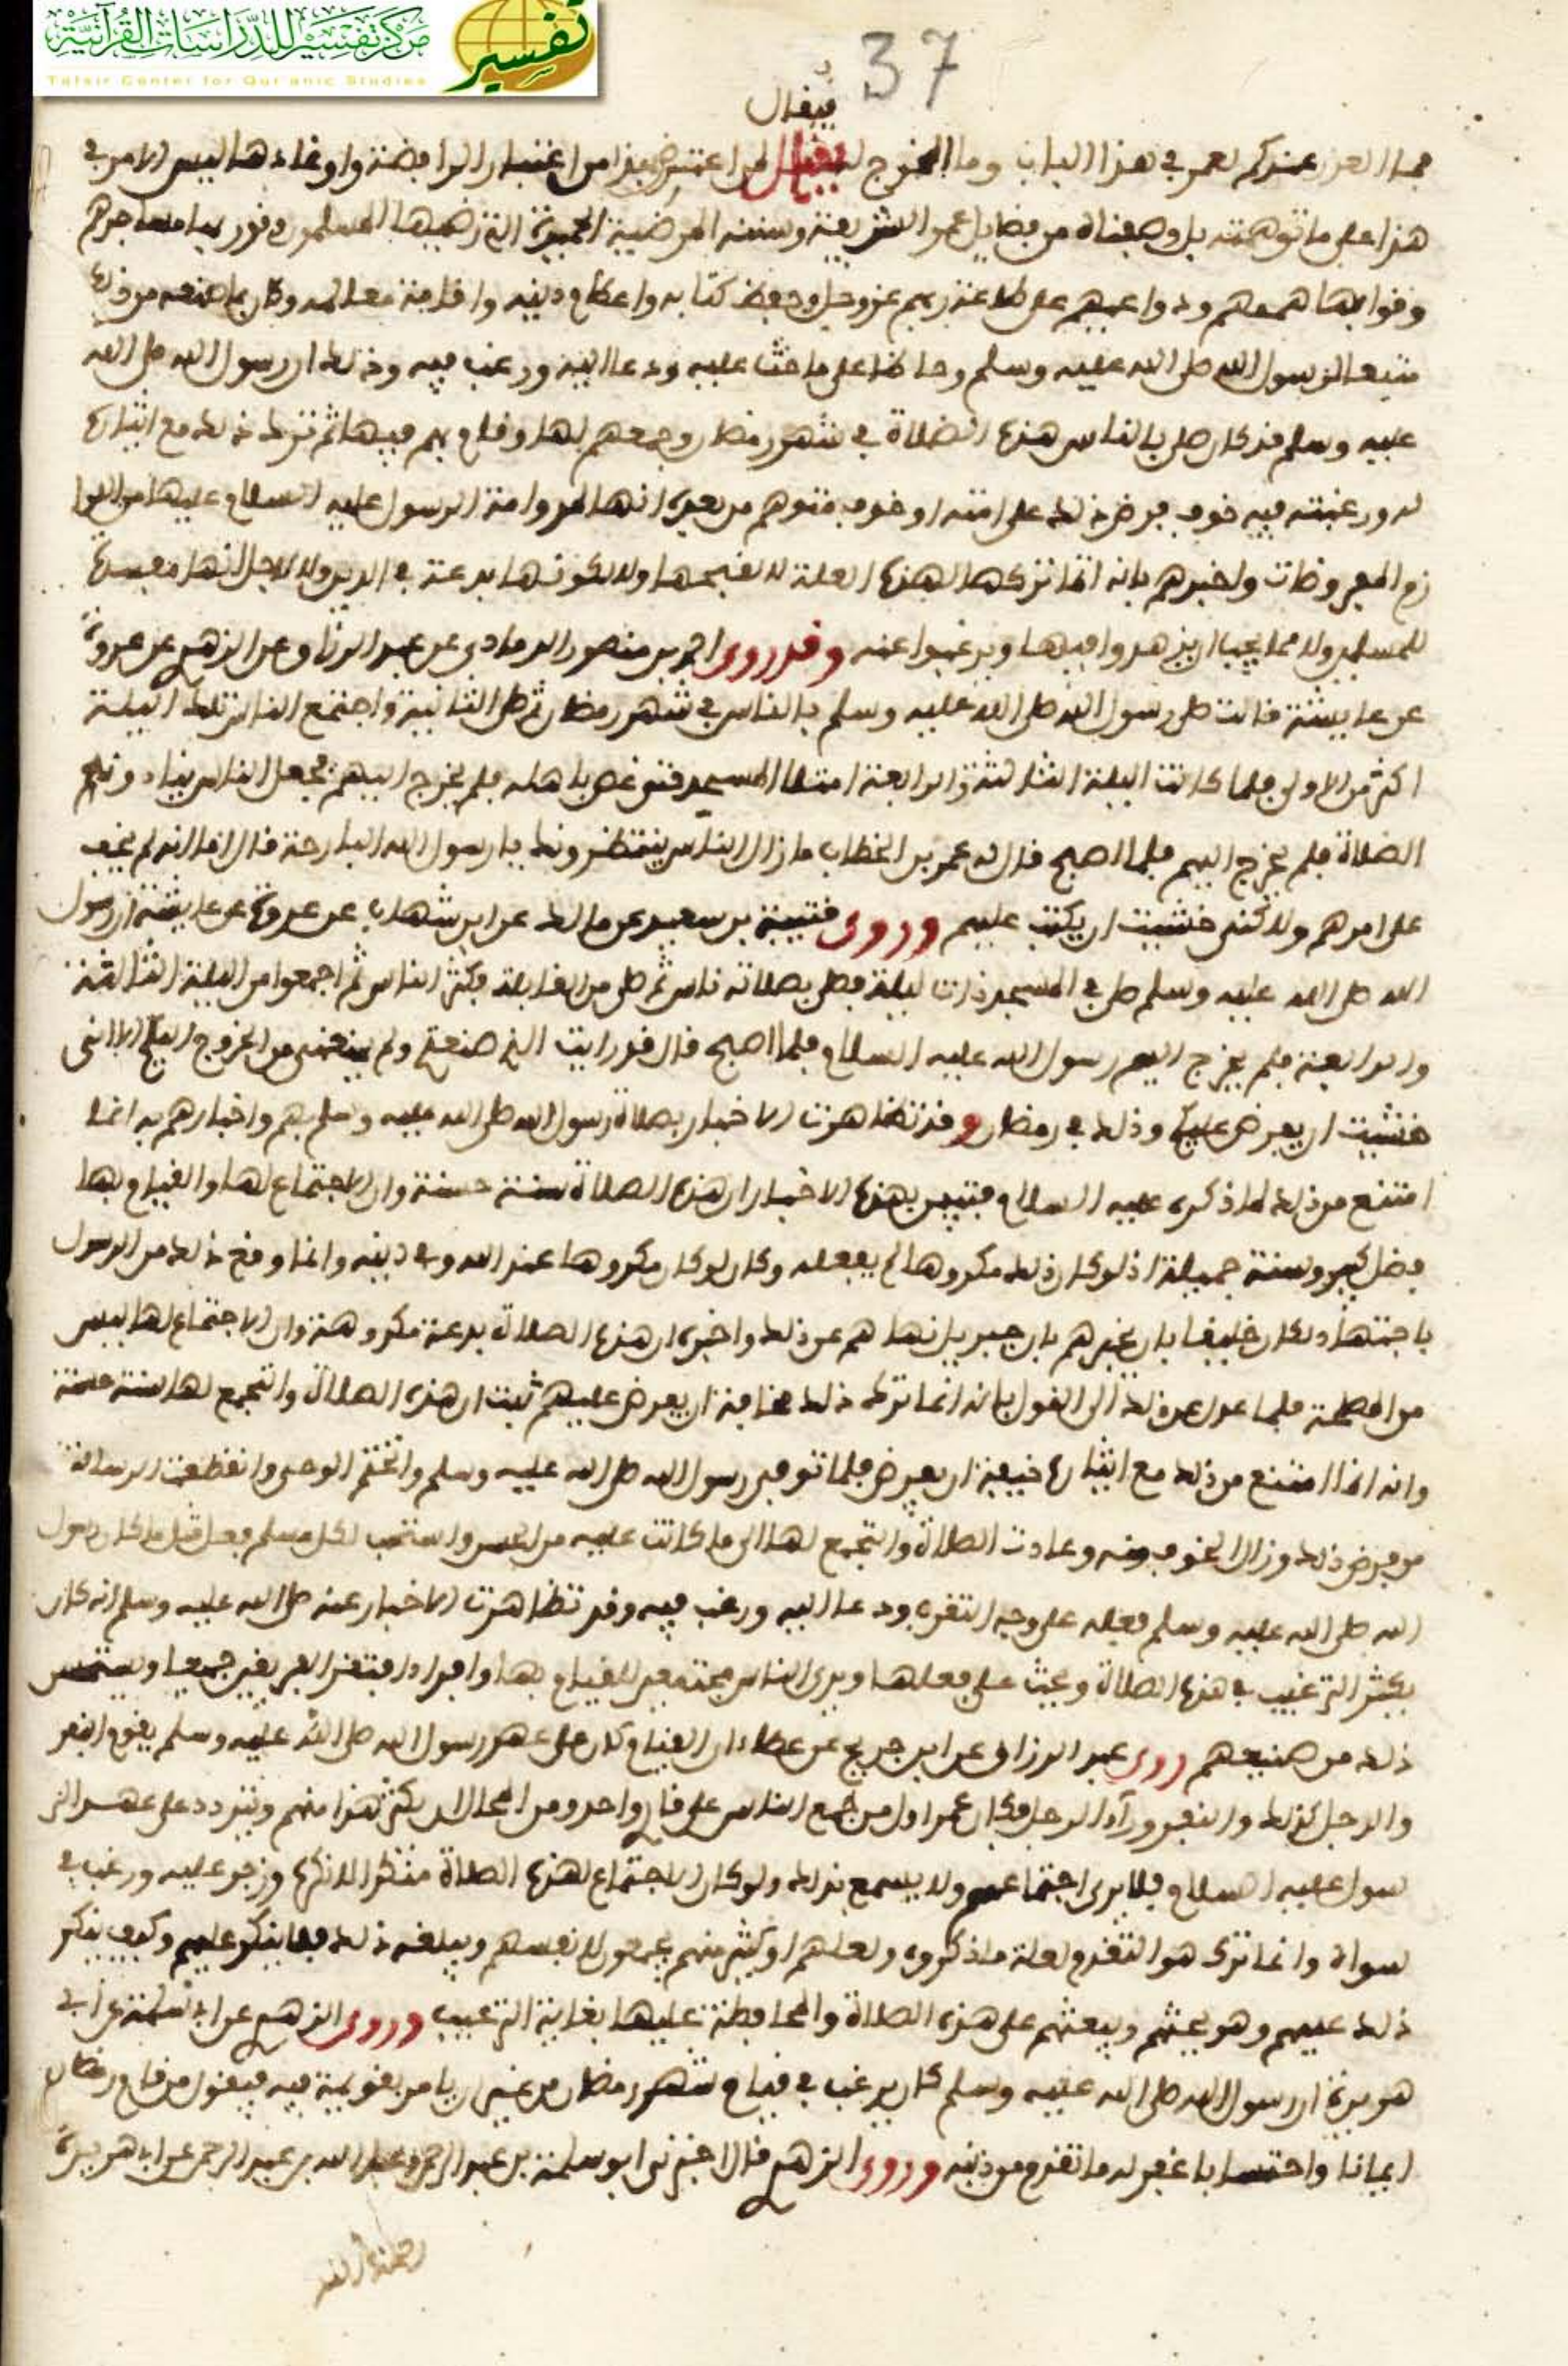 مركز تفسير للدراسات القرآنية
Tafsir Center for Qur'anic Studies
تفسير
37
فيقال
فما العذر عندكم لعمر في هذا الباب وما المخرج له فيقال لمن اعترض بهذا من اغتبار الرافضة واوغادها ليس الامر في
هذا على ما توهمته بل وصفناه من فضايل عمر الشريفة وسننه المرضية الجميلة التي رضيها المسلمون ونور بها مساجدهم
وقوا بها هممهم ودواعيهم على طاعة ربهم عز وجل وحفظ كتابه واعظام دينه واقامة معالمه وكان بما صنعه من ذلك
متبعا لرسول الله صلى الله عليه وسلم وحاضا على ما حث عليه ودعا اليه ورغب فيه وذلك ان رسول الله صلى الله
عليه وسلم قد كان صلى بالناس هذه الصلاة في شهر رمضان وجمعهم لها وقام بهم فيها ثم ترك ذلك مع ايثاره
له ورغبته فيه خوف فرض ذلك على امته او خوف متوهم من بعده انها لمداومة الرسول عليه السلام عليها من اللوا
زم المفروضات واخبرهم بانه انما تركها لهذه العلة لا لقبحها ولا لكونها بدعة في الدين ولا لاجل انها مفسدة
للمسلمين ولا مما يجب ان يزهدوا فيها ويرغبوا عنه وقد روى احمد بن منصور الرمادي عن عبد الرزاق عن الزهري عن عروة
عن عايشة قالت صلى رسول الله صلى الله عليه وسلم بالناس في شهر رمضان ثم صلى الثانية واجتمع الناس تلك الليلة
اكثر من الاولى فلما كانت الليلة الثالثة والرابعة امتلا المسجد حتى غص باهله فلم يخرج اليهم فجعل الناس ينادونه
الصلاة فلم يخرج اليهم فلما اصبح قال له عمر بن الخطاب ما زال الناس ينتظرونك يا رسول الله البارحة قال اما انه لم يخف
على امرهم ولاكنى خشيت ان يكتب عليهم وروى قتيبة بن سعيد عن مالك عن ابن شهاب عن عروة عن عايشة ان رسول
الله صلى الله عليه وسلم صلى في المسجد ذات ليلة فصلى بصلاته ناس ثم صلى من القابلة فكثر الناس ثم اجمعوا من الليلة الثالثة
والرابعة فلم يخرج اليهم رسول الله عليه السلام فلما اصبح قال قد رايت الذي صنعتم ولم يمنعنى من الخروج اليكم الا انى
خشيت ان يفرض عليكم وذلك في رمضان وقد تظاهرت الاخبار بصلاة رسول الله صلى الله عليه وسلم بهم واخبارهم به انما
امتنع من ذلك لما ذكره عليه السلام فتبين بهذه الاخبار ان هذه الصلاة سنة حسنة وان الاجتماع لها والقيام بها
فضل كبير وسنة جميلة اذ لو كان ذلك مكروها لم يفعله وكان لو كان مكروها عند الله وفي دينه وانما وقع ذلك من الرسول
باجتهاد لكان خليقا بان يخبرهم بان جبريل نهاهم عن ذلك واخبره ان هذه الصلاة بدعة مكروهة وان الاجتماع لها ليس
من المصلحة فلما عدل عن ذلك الى القول بانه انما ترك ذلك مخافة ان يفرض عليهم ثبت ان هذه الصلاة والتجمع لها سنة حسنة
وانه انما امتنع من ذلك مع ايثاره خيفة ان يفرض فلما توفي رسول الله صلى الله عليه وسلم واختتم الوحى وانقطعت الرسالة
من فرض ذلك وزال الخوف منه وعادت الصلاة والتجمع لها الى ما كانت عليه من الحسن واستحب لكل مسلم فعل مثل ما كان رسول
الله صلى الله عليه وسلم فعله على وجه التقرب ودعا اليه ورغب فيه وقد تظاهرت الاخبار عنه صلى الله عليه وسلم انه كان
يكثر الترغيب في هذه الصلاة ويحث على فعلها ويرى الناس مجتمعين للقيام بها وافرادا فيقر الفريقين جميعا ويستحسن
ذلك من صنيعهم روى عبد الرزاق عن ابن جريج عن عطاء ان القيام كان على عهد رسول الله صلى الله عليه وسلم يقوم النفر
والرجل كذلك والنفر وراء الرجل فكان عمر اول من جمع الناس على قار واحد ومن المحال ان يكثر هذا منهم ويتردد على عهد الر
سول عليه السلام فلا يرى اجتماعهم ولا يسمع بذلك ولو كان الاجتماع لهذه الصلاة منكرا لانكره وزجر عليه ورغب في
سواه وانما ترك هو التقدم لعلة ما ذكره ولعلهم او كثير منهم يجمعون لانفسهم ويبلغه ذلك فلا ينكر عليهم وكيف ينكر
ذلك عليهم وهو يحثهم ويبعثهم على هذه الصلاة والمحافظة عليها بغاية الترغيب وروى الزهري عن ابي سلمة عن ابي
هريرة ان رسول الله صلى الله عليه وسلم كان يرغب في قيام شهر رمضان من غير ان يامر بعزيمة فيه فيقول من قام رمضان
ايمانا واحتسابا غفر له ما تقدم من ذنبه وروى الزهري قال اخبرني ابو سلمة بن عبد الرحمن وعبد الله بن عبد الرحمن عن ابي هريرة